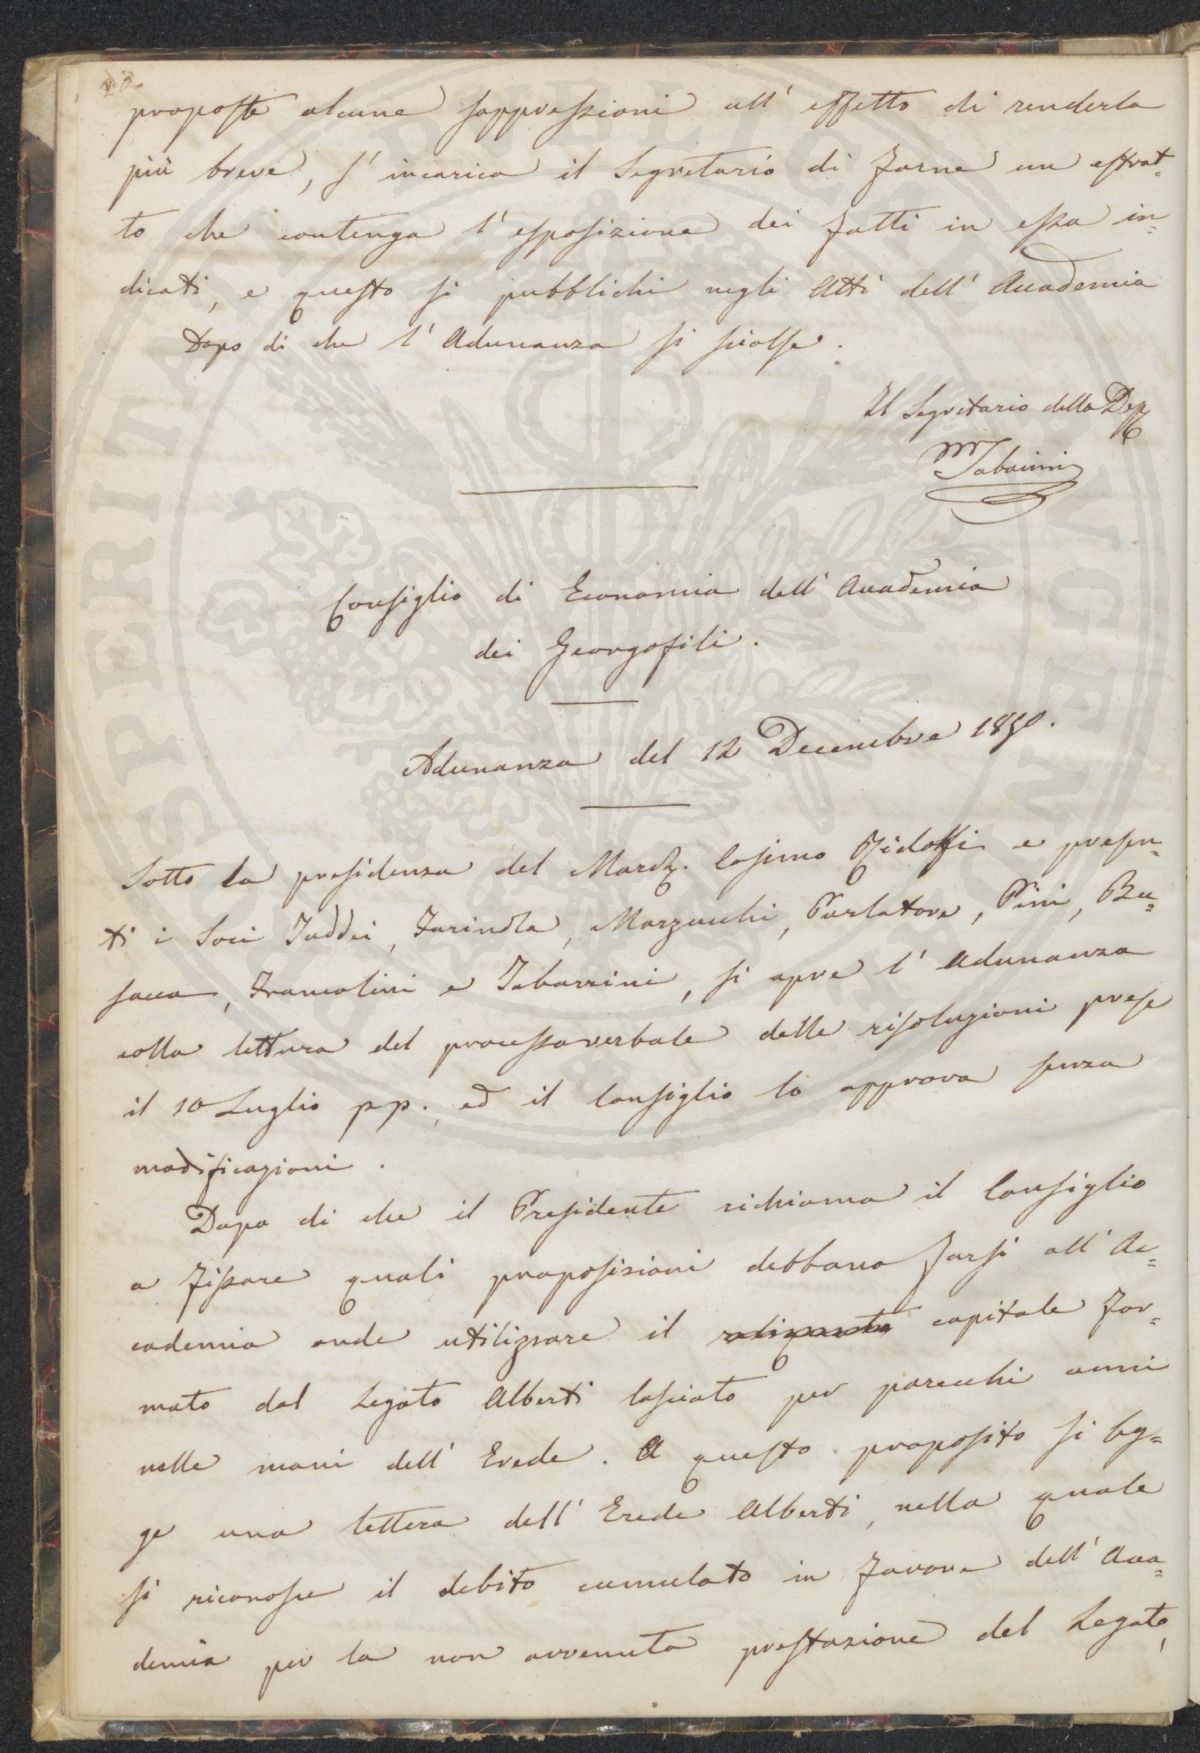 proposte alcune soppressioni all' effetto di renderla
più breve, s' incarica il Segretario di farne un estrat=
to che contenga l' esposizione dei fatti in essa in=
dicati, e questo si pubblichi negli Atti dell' Accademia
Dopo di che l' Adunanza si sciolse.
Il Segretario della Dep
M Tabarrini
Consiglio di Economia dell' Accademia
dei Georgofili.
Adunanza del 12 Decembre 1850.
Sotto la presidenza del March. Cosimo Ridolfi e presen=
ti i Soci Taddei, Farinola, Marzucchi, Parlatore, Pini, Bu=
sacca, Francolini e Tabarrini, si apre l' Adunanza
colla lettura del processo verbale delle risoluzioni prese
il 10 Luglio pp., ed il Consiglio lo approva senza
modificazioni.
Dopo di che il Presidente richiama il Consiglio
a fissare quali proposizioni debbano farsi all' Ac=
cademia onde utilizzare il capitale for=
mato dal Legato Alberti lasciato per parecchi anni
nelle mani dell' Erede. A questo proposito si leg=
ge una lettera dell' Erede Alberti, nella quale
si riconosce il debito cumulato in favore dell' Acca=
demia per la non avvenuta prestazione del Legato,